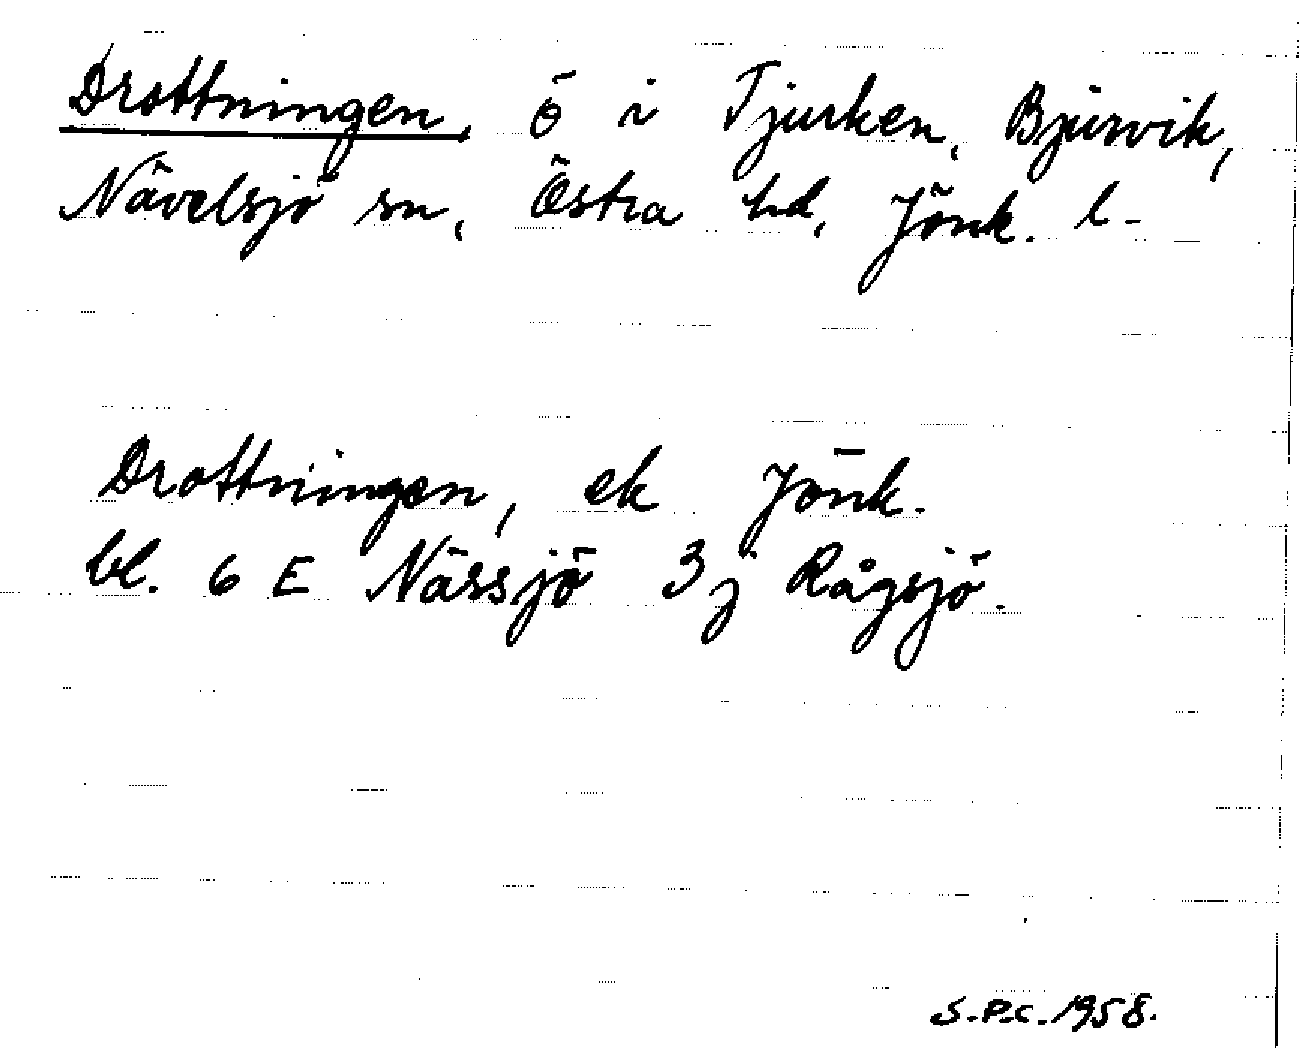 Drottningen, ö i Tjurken, Bjurvik,
Nävelsjö sn, Östra hd, Jönk. l-
Drottningen, ek Jönk.
bl. 6 E Nässjö 3j Rågsjö.
S.P.C. 1958.